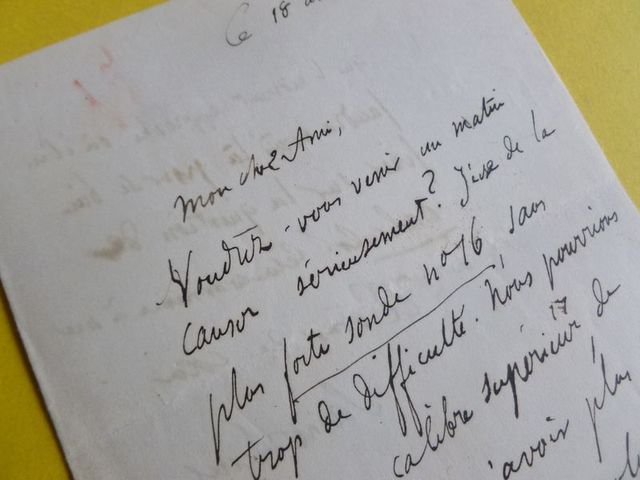 Ce 18
Mon cher Ami,
Voudriez-vous venir un matin
causer sérieusement? J'use de la
plus forte sonde no 16 sans
trop de difficulté. Nous pourrions
17
calibre supérieur de
avoir plus